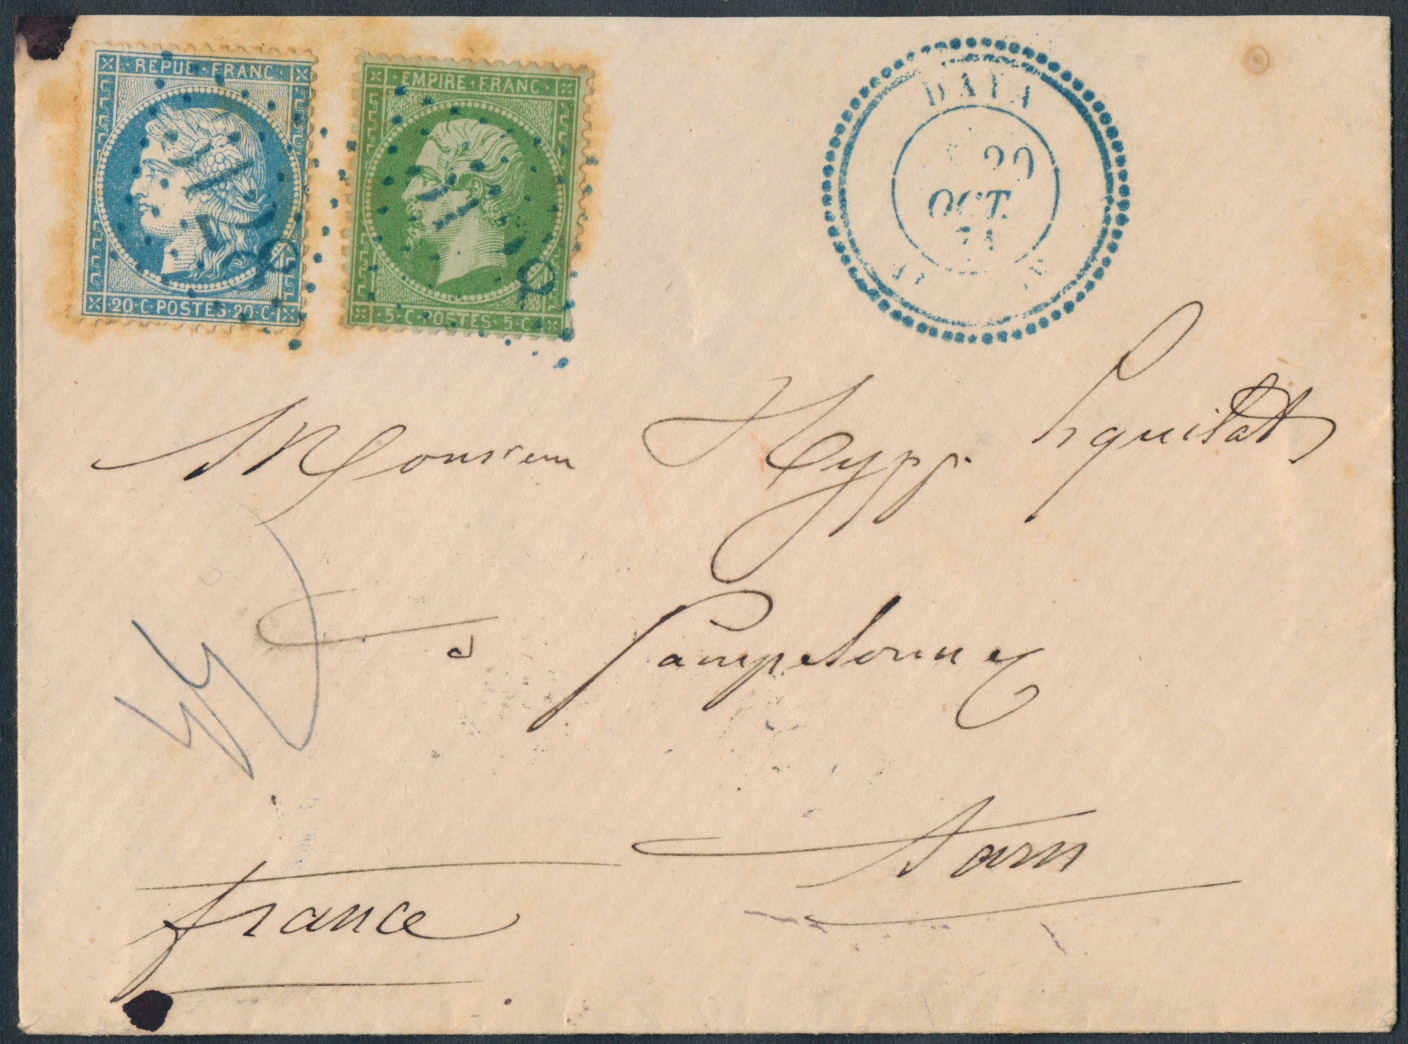 REPUB·FRANC·
20·C·POSTES·20·C·
EMPIRE·FRANC·
5·C·POSTES·5·C·
DAYA
20
OCT.
Monsieur Hypp.
a Pampelonne
Tarn
France